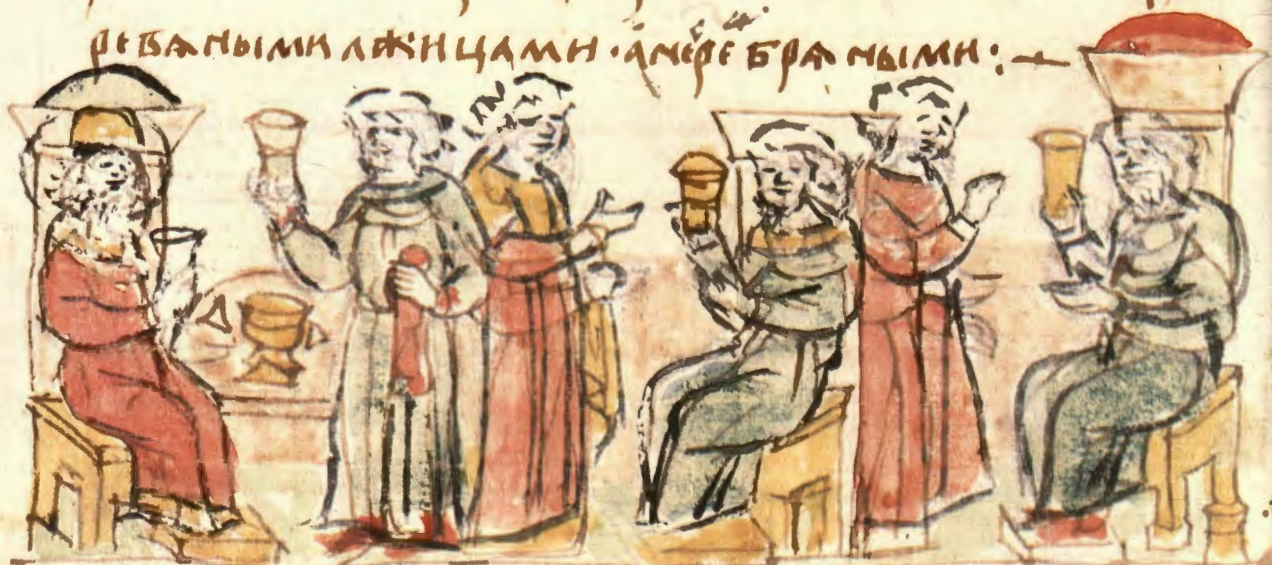 ревѧными лжицами · а не среб рѧными :